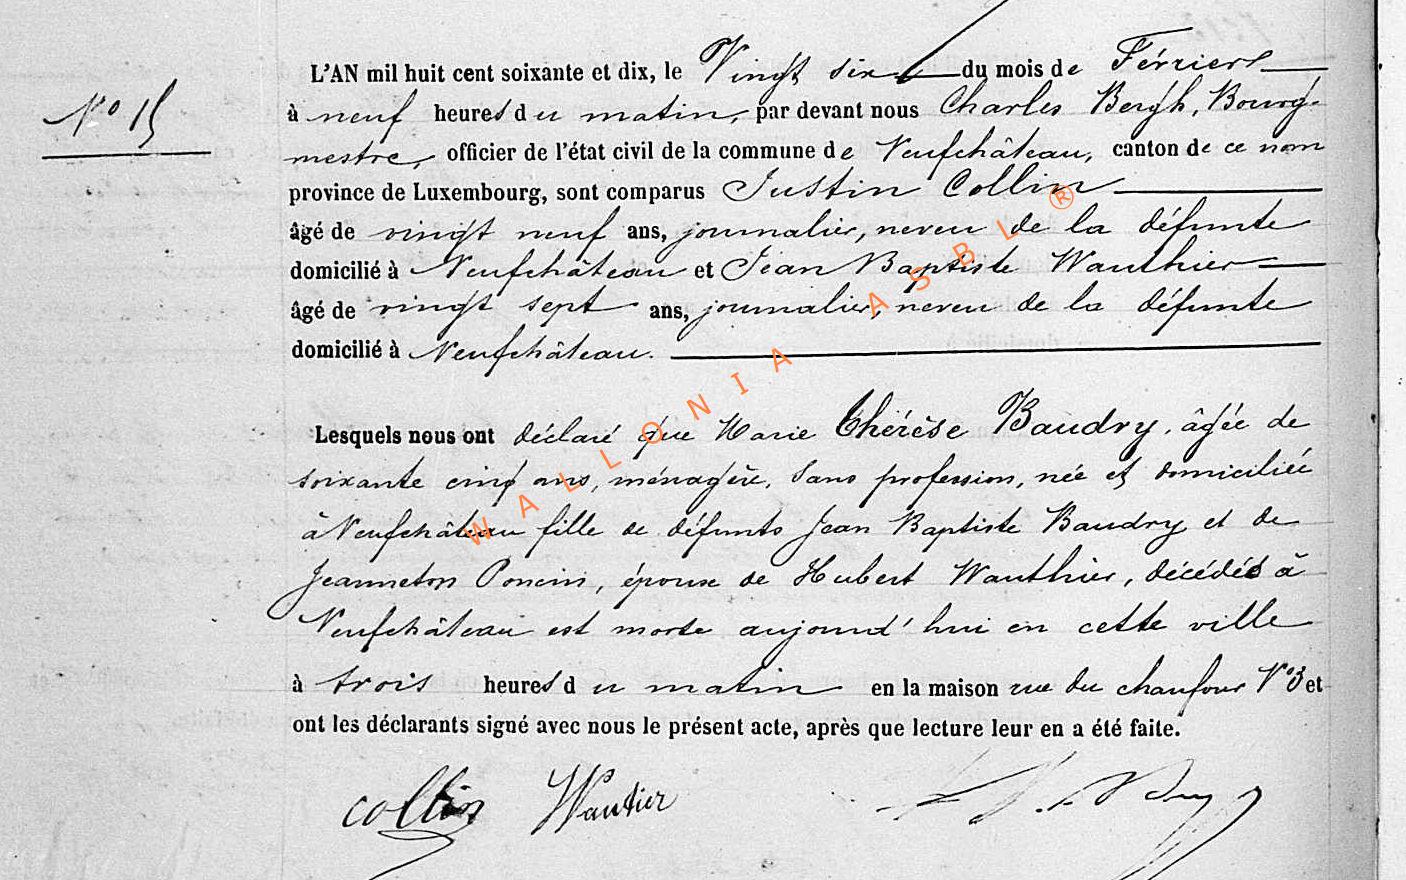 L'AN mil huit cent soixante et dix, le Vingt six du mois de Février
N° 15
à neuf heures du matin, par devant nous Charles Bergh, Bourg-
mestre, officier de l'état civil de la commune de Neufchâteau, canton de ce nom
province de Luxembourg, sont comparus Justin Collin
âgé de vingt neuf ans, journalier, neveu de la défunte
domicilié à Neufchâteau et Jean Baptiste Wauthier
âgé de vingt sept ans, journalier, neveu de la défunte
domicilié à Neufchâteau.
Lesquels nous ont déclaré que Marie Thérèse Baudry, âgée de
soixante cinq ans, ménagère, sans profession, née et domiciliée
à Neufchâteau fille de défunts Jean Baptiste Baudry et de
Jeanneton Poncin, épouse de Hubert Wauthier, décédé à
Neufchâteau est morte aujourd'hui en cette ville
à trois heures du matin en la maison rue du chaufour N°3 et
ont les déclarants signé avec nous le présent acte, après que lecture leur en a été faite.
collin Wautier
WALLONIA ASBL ®